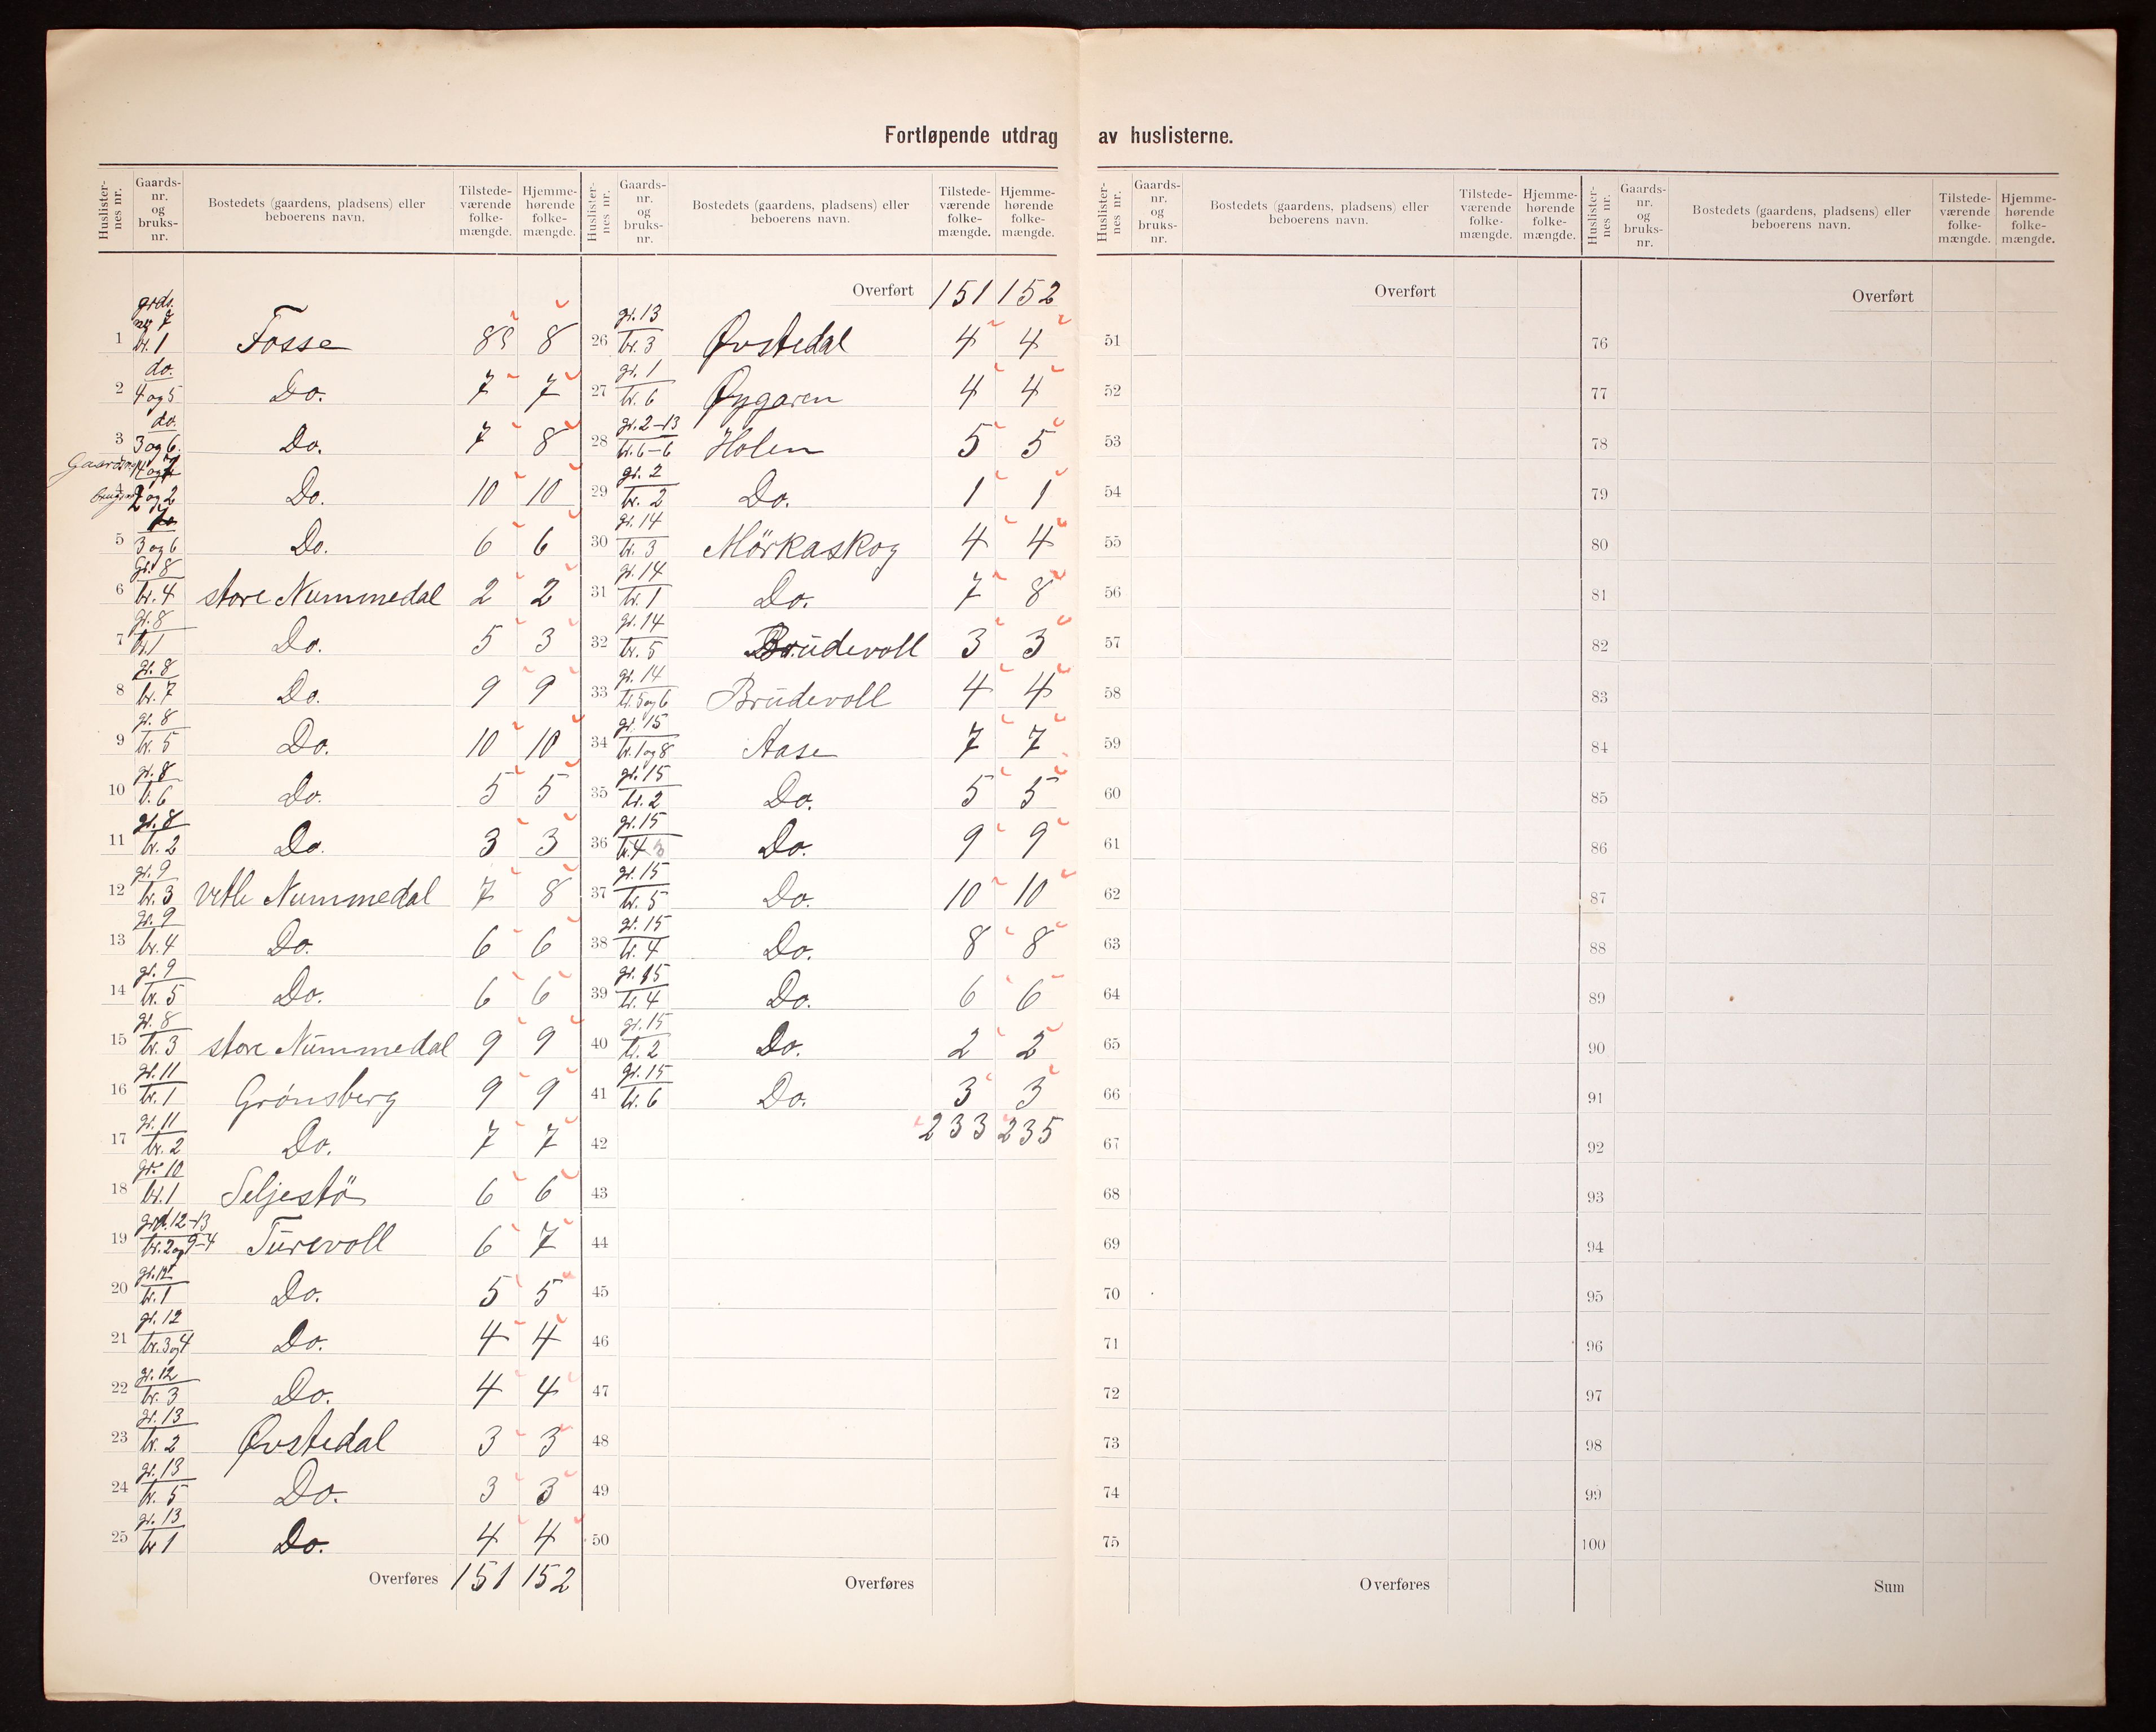 Fortløpende utdrag av huslisterne.
Huslisternes nr. Gaards-nr. og bruks-nr. Bostedets (gaardens, pladsens) eller beboerens navn. Tilstedeværende folkemængde. Hjemmehørende folkemængde.
1 grds. nr 7 br. 1 Fosse 8 8
2 do. 4 og 5 Do. 7 7
3 do. 3 og 6. Do. 7 8
4 Do. 10 10
5 do 3 og 6 Do. 6 6
6 gr. 8 br. 4 store Nummedal 2 2
7 gr. 8 br. 1 Do. 5 3
8 gr. 8 br. 7 Do. 9 9
9 gr. 8 br. 5 Do. 10 10
10 gr. 8 b. 6 Do. 5 5
11 gr. 8 br. 2 Do. 3 3
12 gr. 9 br. 3 vetle Nummedal 7 8
13 gr. 9 br. 4 Do. 6 6
14 gr. 9 br. 5 Do. 6 6
15 gr. 8 br. 3 store Nummedal 9 9
16 gr. 11 br. 1 Grönsberg 9 9
17 gr. 11 br. 2 Do. 7 7
18 gr. 10 br. 1 Seljestö 6 6
19 grd. 12-13 br. 2 og 9-4 Turevoll 6 7
20 gr. 12 br. 1 Do. 5 5
21 gr. 12 br. 3 og 4 Do. 4 4
22 gr. 12 br. 3 Do. 4 4
23 gr. 13 br. 2 Øvstedal 3 3
24 gr. 13 br. 5 Do. 3 3
25 gr. 13 br 1 Do. 4 4
Overføres 151 152
Huslisternes nr. Gaards-nr. og bruks-nr. Bostedets (gaardens, pladsens) eller beboerens navn. Tilstedeværende folkemængde. Hjemmehørende folkemængde.
Overført 151 152
26 gr. 13 br. 3 Øvstedal 4 4
27 gr. 1 br. 6 Øygaren 4 4
28 gr. 2-13 br. 6-6 Holen 5 5
29 gr. 2 br. 2 Do. 1 1
30 gr. 14 br. 3 Mörkaskog 4 4
31 gr. 14 br. 1 Do. 7 8
32 gr. 14 br. 5 Brudevoll 3 3
33 gr. 14 br. 5 og 6 Brudevoll 4 4
34 gr. 15 br. 1 og 8 Aase 7 7
35 gr. 15 br. 2 Do. 5 5
36 gr. 15 br. 4 3 Do. 9 9
37 gr. 15 br. 5 Do. 10 10
38 gr. 15 br. 4 Do. 8 8
39 gr. 15 br. 4 Do. 6 6
40 gr. 15 br. 2 Do. 2 2
41 gr. 15 br. 6 Do. 3 3
42 233 235
43
44
45
46
47
48
49
50
Overføres
Huslisternes nr. Gaards-nr. og bruks-nr. Bostedets (gaardens, pladsens) eller beboerens navn. Tilstedeværende folkemængde. Hjemmehørende folkemængde.
Overført
51
52
53
54
55
56
57
58
59
60
61
62
63
64
65
66
67
68
69
70
71
72
73
74
75
Overføres
Huslisternes nr. Gaards-nr. og bruks-nr. Bostedets (gaardens, pladsens) eller beboerens navn. Tilstedeværende folkemængde. Hjemmehørende folkemængde.
Overført
76
77
78
79
80
81
82
83
84
85
86
87
88
89
90
91
92
93
94
95
96
97
98
99
100
Sum